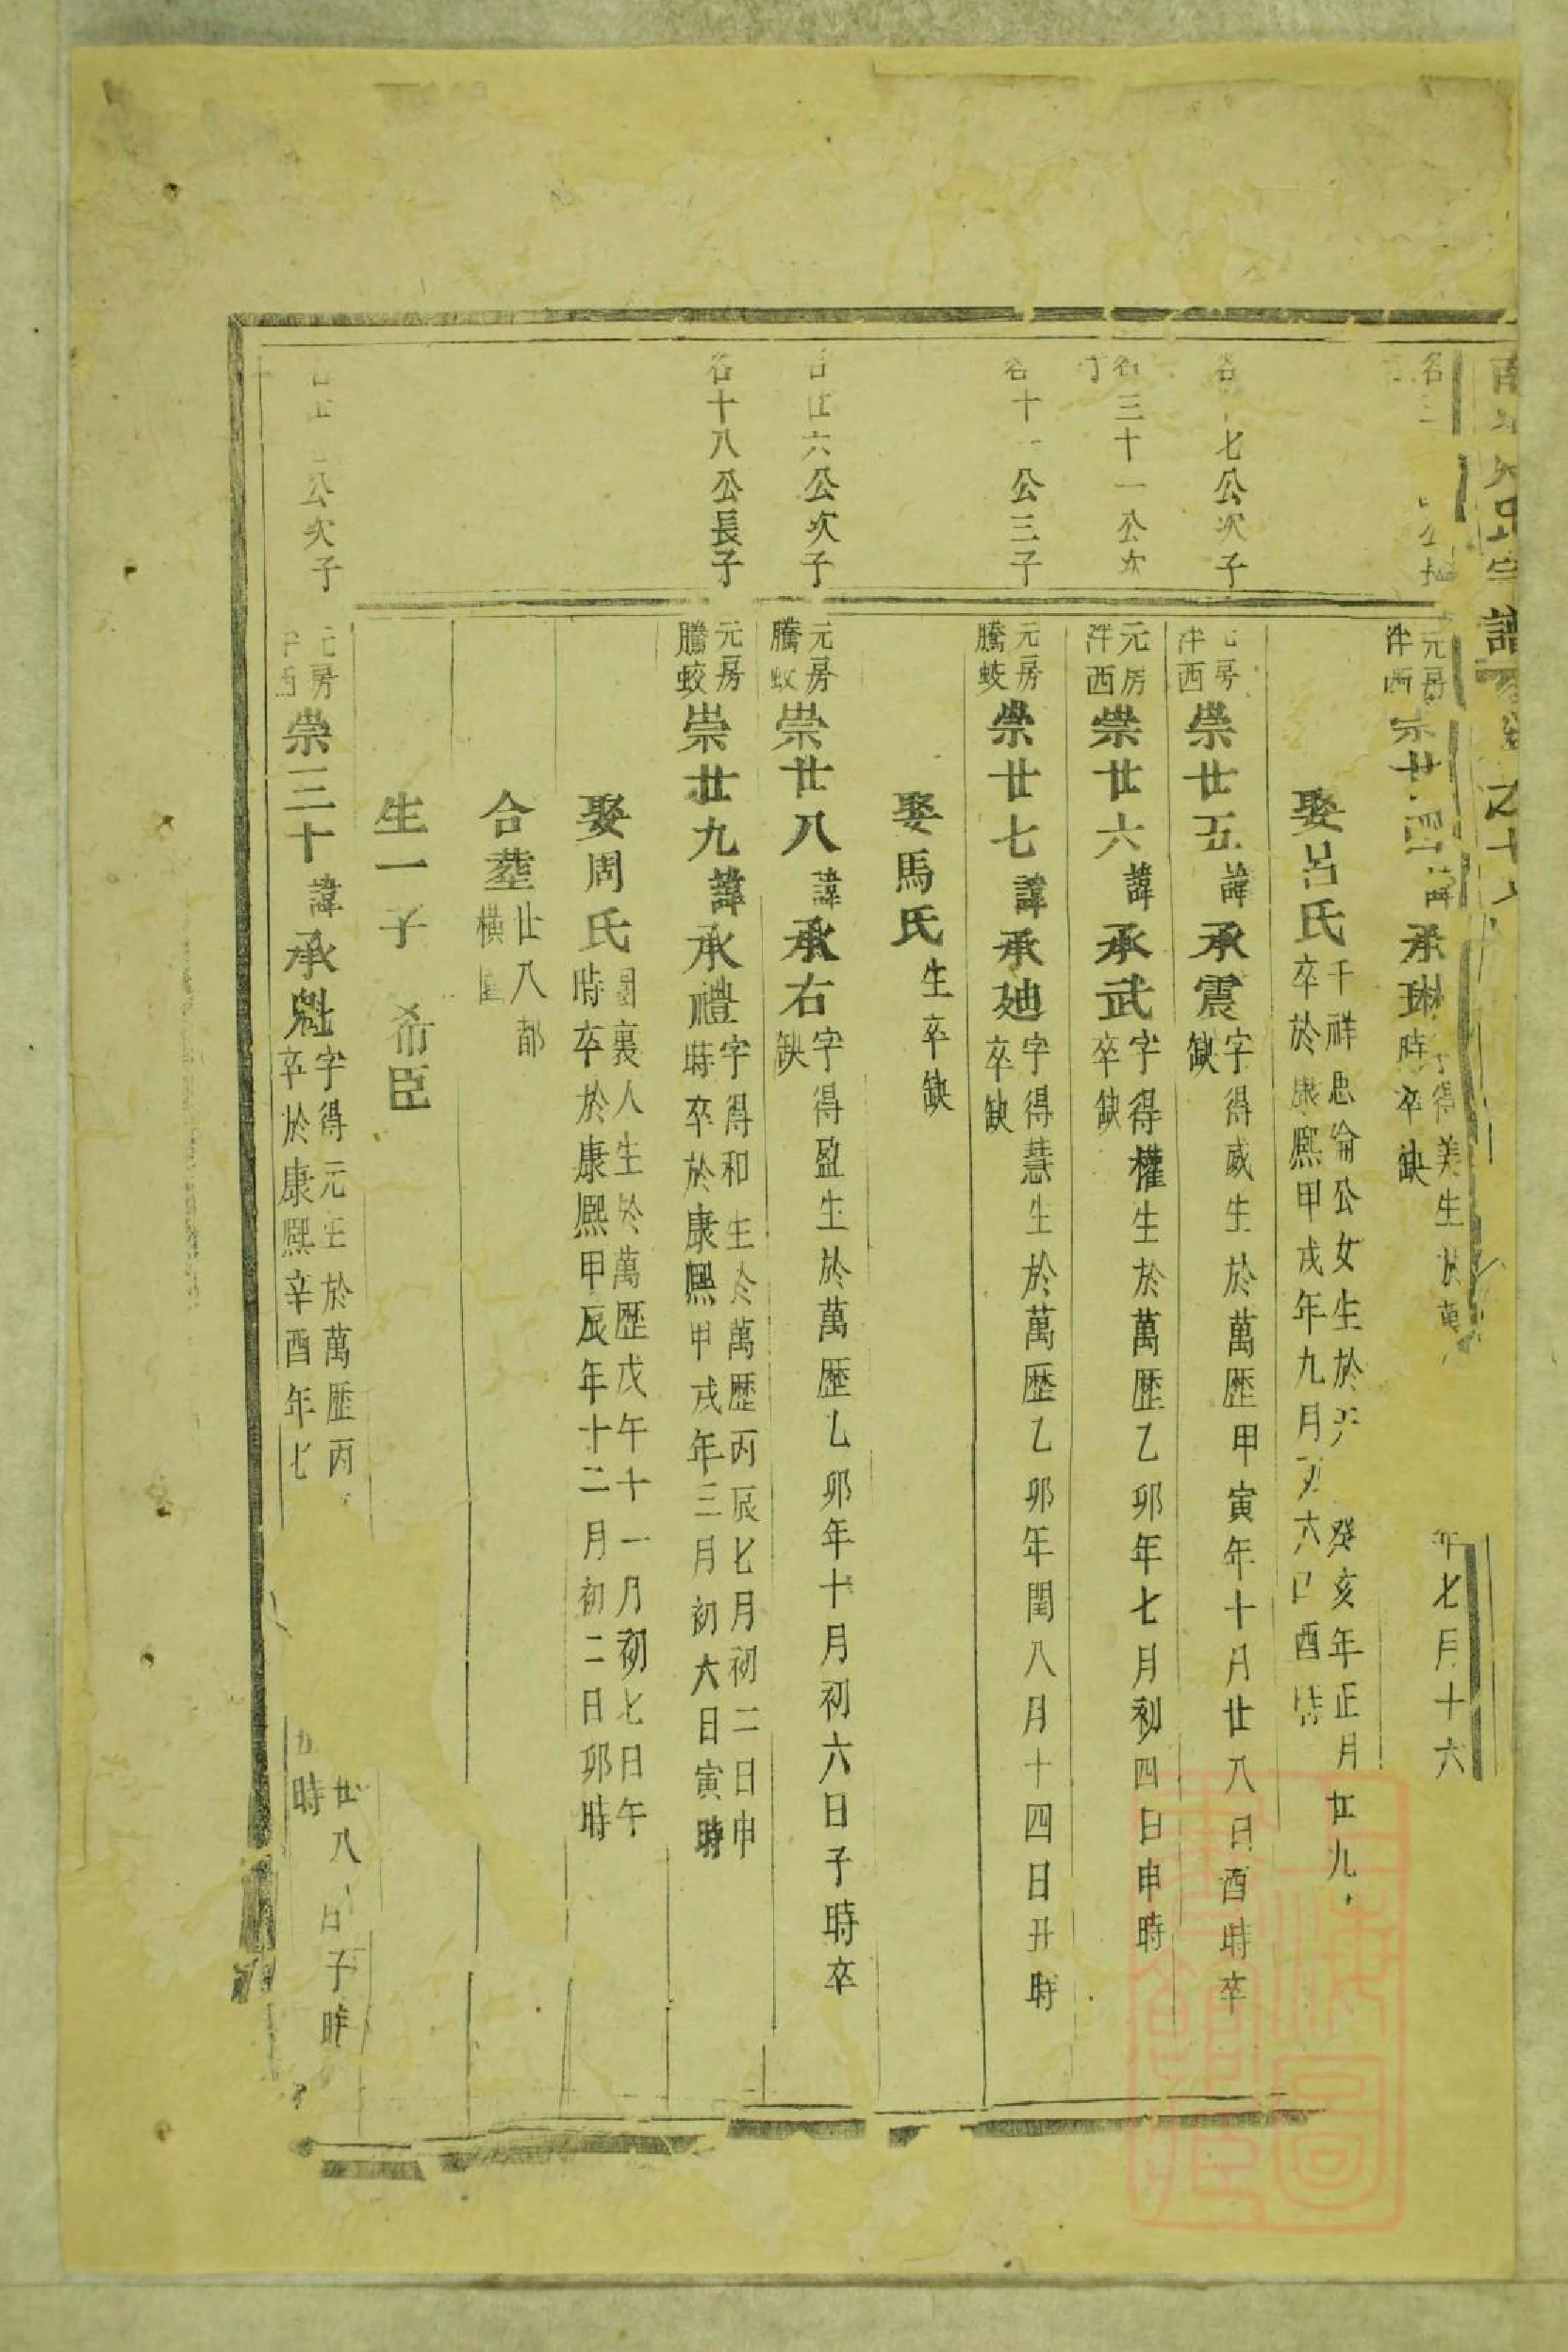 氏宗譜
公
元房
泮西
崇廿四諱承琳
字得美生於萬
年七月十六
時卒缺
娶呂氏
千祥思倫公女生於
癸亥年正月廿九
卒於康熙甲戌年九月
六日酉時
名七公次子
元房
泮西
崇廿五諱承震
字得威生於萬歷甲寅年十月廿八日酉時卒
缺
名三十一公次
子
元房
泮西
崇廿六諱承武
字得權生於萬歷乙卯年七月初四日申時
卒缺
名十一公三子
元房
騰蛟
崇廿七諱承廸
字得慧生於萬歷乙卯年閏八月十四日丑時
卒缺
娶馬氏
生卒缺
名廿六公次子
元房
騰蛟
崇廿八諱承右
字得盈生於萬歷乙卯年十月初六日子時卒
缺
名十八公長子
元房
騰蛟
崇廿九諱承禮
字得和生於萬歷丙辰七月初二日申
時卒於康熙甲戌年三月初六日寅時
娶周氏
裏人生於萬歷戊午十一月初七日午
時卒於康熙甲辰年十二月初二日卯時
合塟
廿八都
橫
生一子 希臣
公次子
元房
泮西
崇三十諱承魁
字得元生於萬歷丙
廿八日子時
卒於康熙辛酉年七
時
上海圖
書館藏